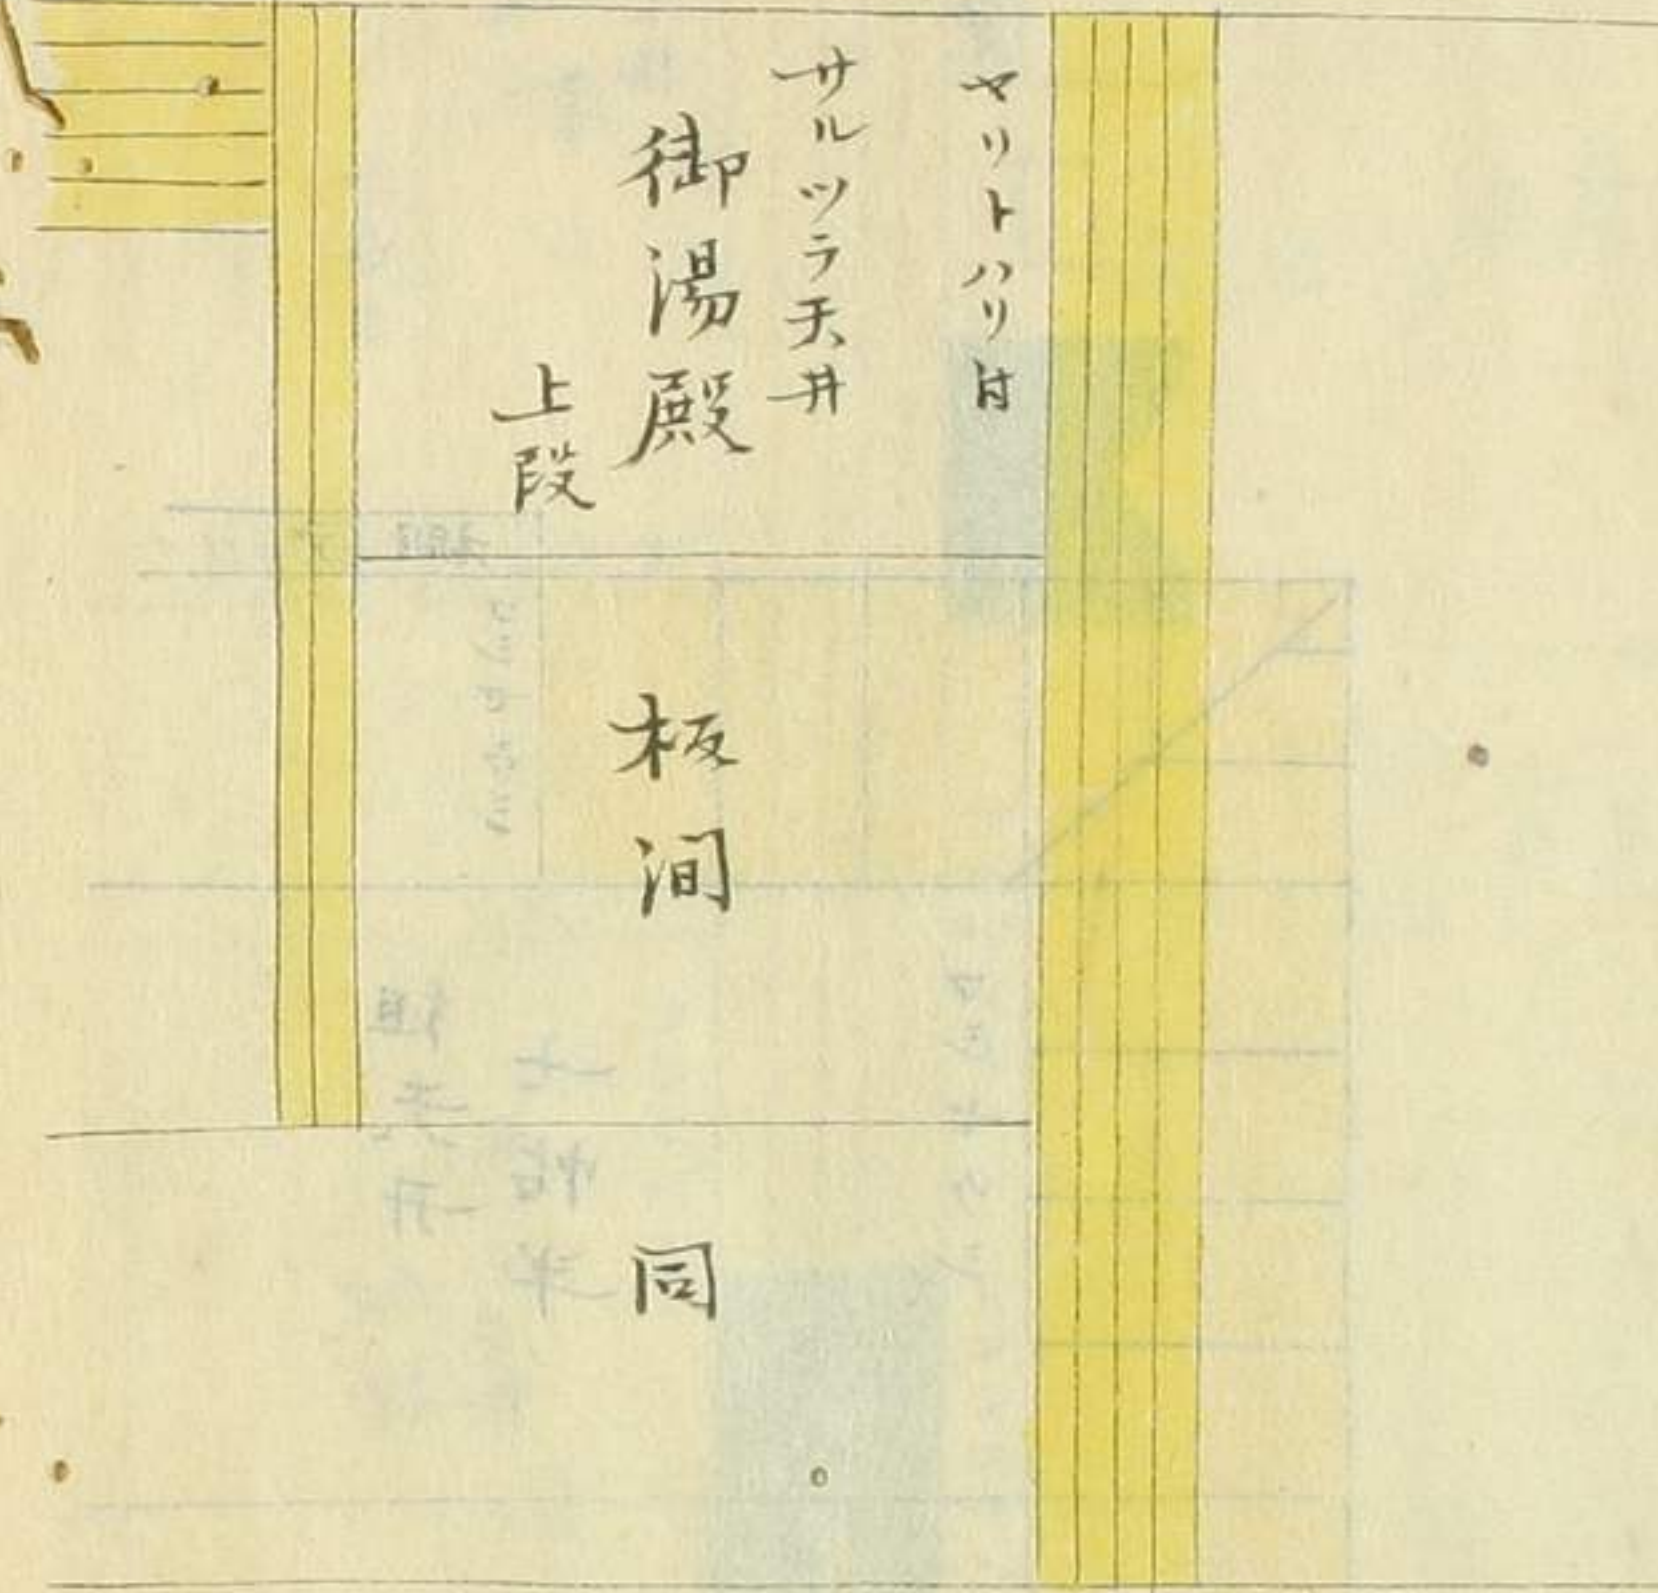 ヤリトハリ付
サルツラ天井
御湯殿
上段
板間
同